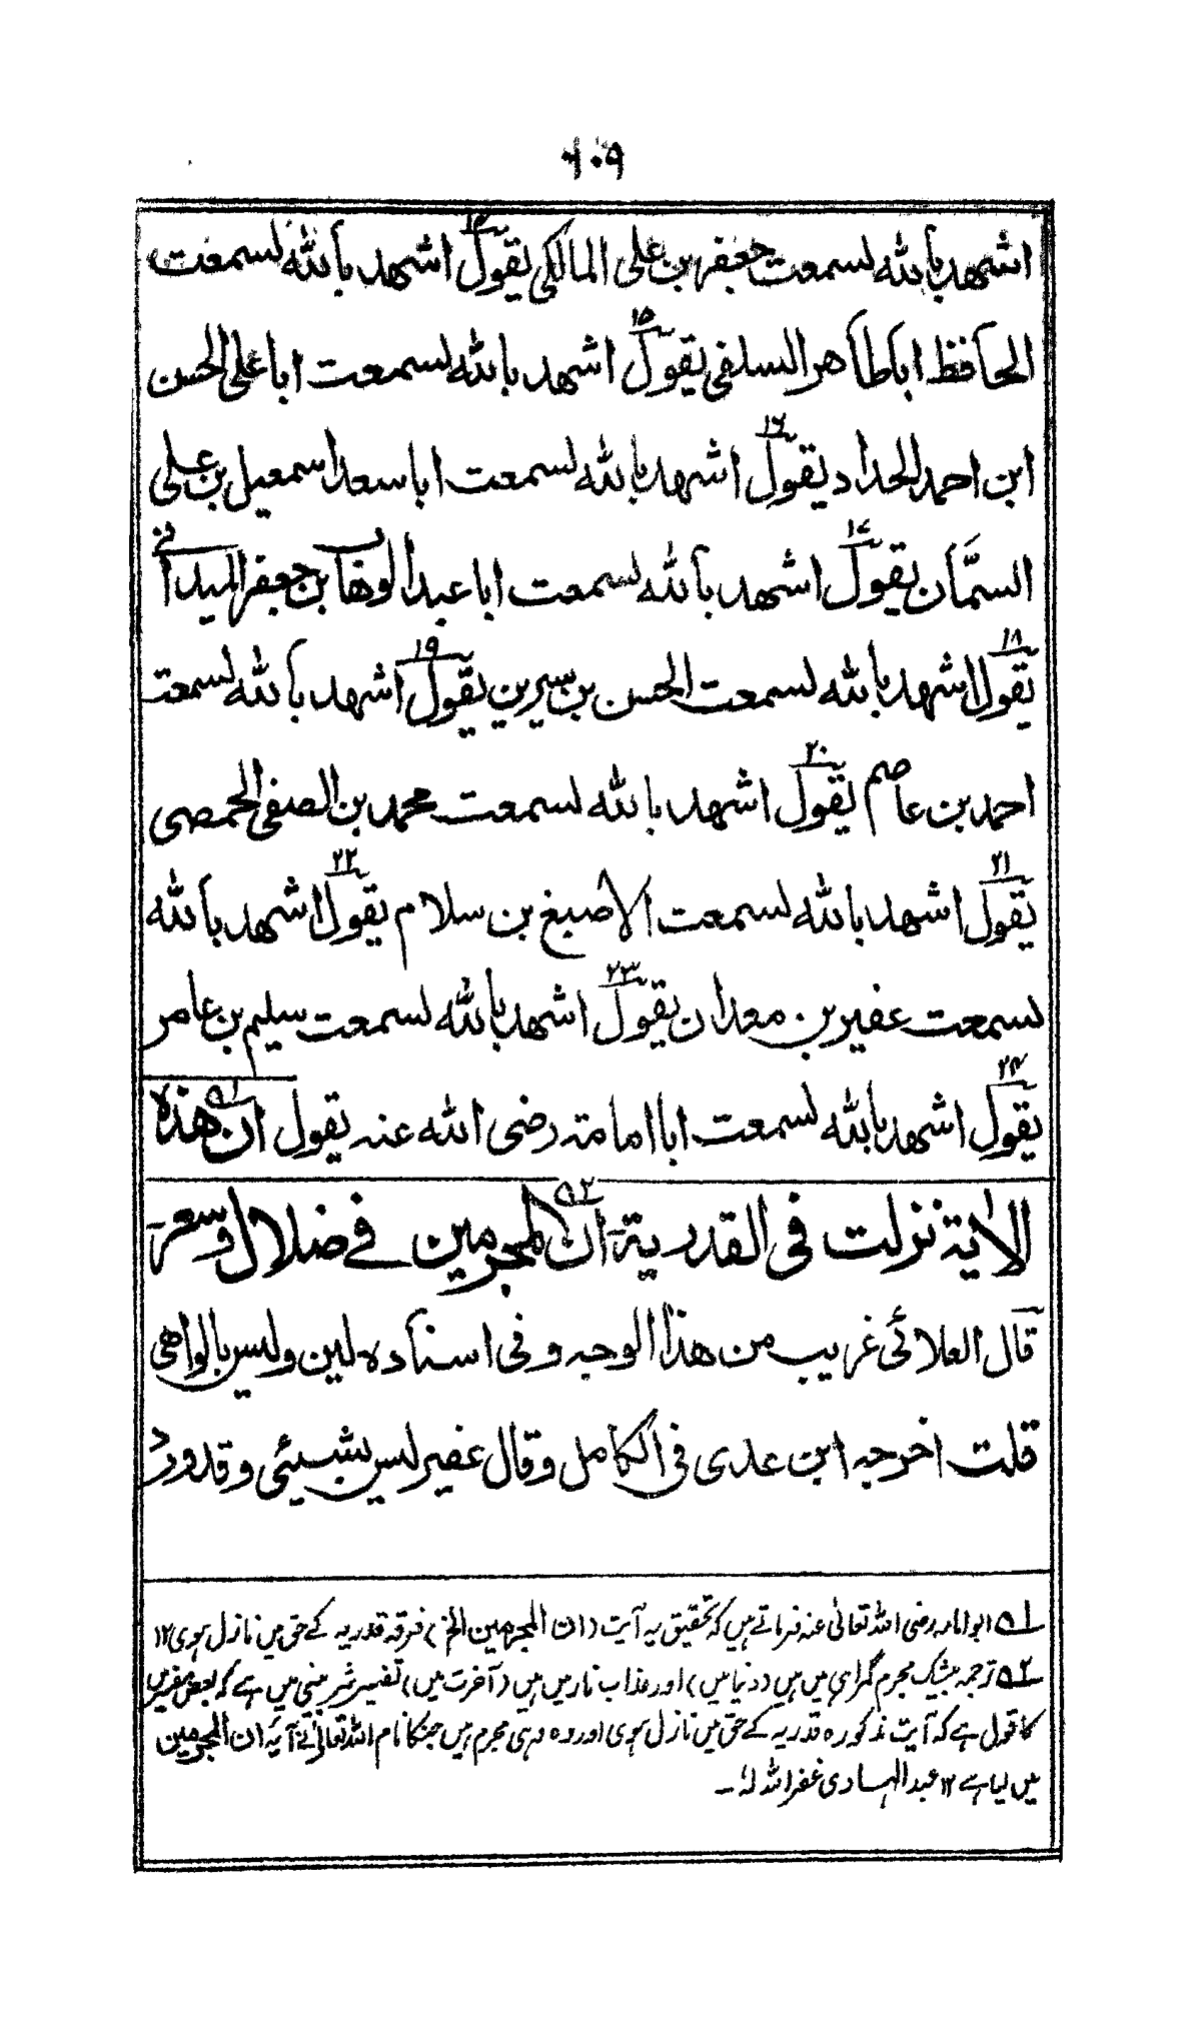 ۶۰۹
اشهد بالله لسمعت جعفر بن على المالكى يقول۱۴ اشهد بالله لسمعت
الحافظ اباطاهر السلفى يقول۱۵ اشهد بالله لسمعت اباعلى الحسن
ابن احمد الحداد يقول۱۶ اشهد بالله لسمعت اباسعد اسمعيل بن على
السمّان يقول۱۷ اشهد بالله لسمعت اباعبد الوهاب بن جعفر الميدانى
يقول۱۸ اشهد بالله لسمعت الحسن بن سيرين يقول۱۹ اشهد بالله لسمعت
احمد بن عاصم يقول۲۰ اشهد بالله لسمعت محمد بن الصفى الحمصى
يقول۲۱ اشهد بالله لسمعت الاصبغ بن سلام يقول۲۲ اشهد بالله
لسمعت عفير بن معدان يقول۲۳ اشهد بالله لسمعت سليم بن عامر
يقول۲۴ اشهد بالله لسمعت ابا امامة رضى الله عنه يقول ان۵۱ هذه
الاية نزلت فى القدرية ان۵۲ المجرمين فى ضلال وسعر
قال العلائى غريب من هذا الوجه وفى اسناده لين وليس بالواهى
قلت اخرجه ابن عدى فى الكامل وقال عفير ليس بشيئى وقد ورد
۵۱ ابوامامہ رضی اللہ تعالیٰ عنہ فرماتے ہیں کہ تحقیق یہ آیت (ان المجرمین الخ) فرقہ قدریہ کے حق میں نازل ہوی ۱۲
۵۲ ترجمہ بیشک مجرم گمراہی میں ہیں (دنیا میں) اور عذاب نار میں ہیں (آخرت میں) تفسیر شربینی میں ہے کہ بعض مفسرین
کا قول ہے کہ آیت مذکورہ قدریہ کے حق میں نازل ہوی اور وہ وہی مجرم ہیں جنکا نام اللہ تعالیٰ نے آیہ ان المجرمین
میں لیا ہے ۱۲ عبدالہادی غفر اللہ لہٗ۔